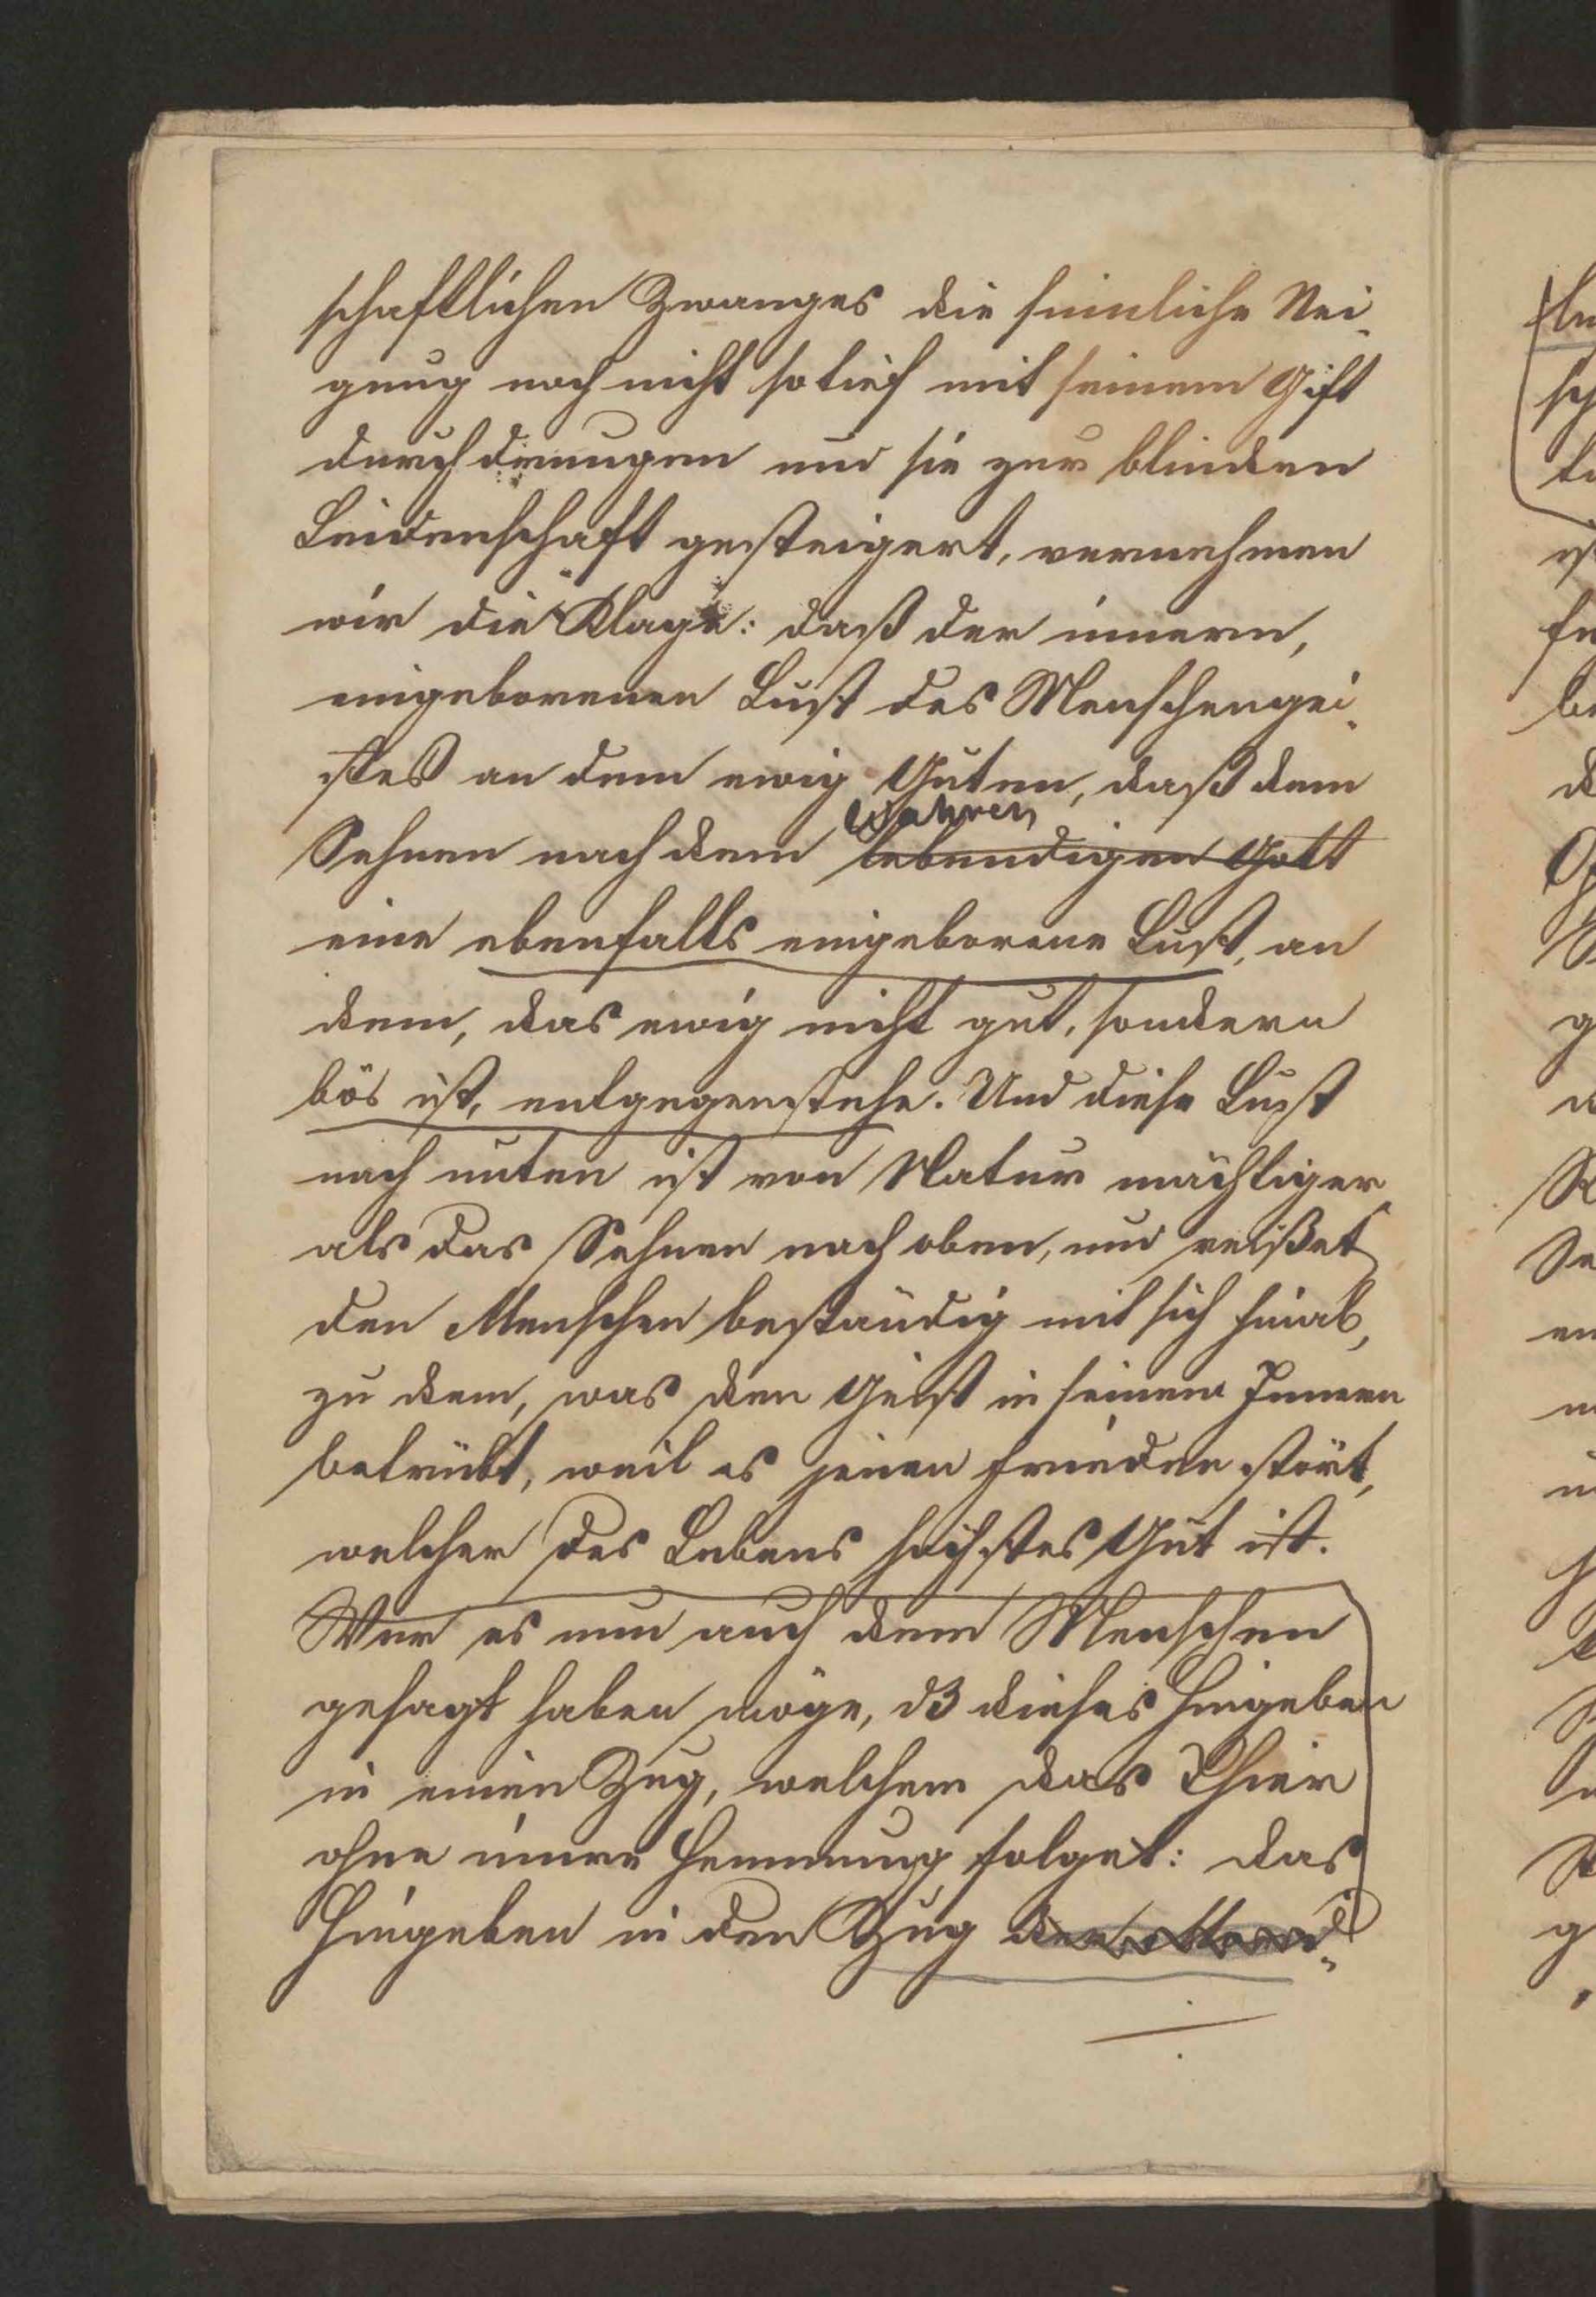 schaftlichen Zwanges die sinnliche Nei-
gung noch nicht so tief mit seinem Gift
durchdrungen und sie zur blinden
Leidenschaft gesteigert, vernehmen
wir die Klage: daß der innern,
eingeborenen Lust des Menschengei-
stes an dem ewig Guten, daß dem
wahren
Sehnen nach dem lebendigen Gott
eine ebenfalls eingeborene Lust, an
dem, das ewig nicht gut, sondern
bös ist, entgegenstehe. Und diese Lust
nach unten ist von Natur mächtiger
als das Sehnen nach oben, und reißet
den Menschen beständig mit sich hinab,
zu dem, was den Geist in seinem Innern
betrübt, weil es jenen Frieden stört,
welcher des Lebens höchstes Gut ist.
Wer es nun auch dem Menschen
gesagt haben möge, dß dieses Hingeben
in einen Zug, welchem das Thier
ohne innere Hemmung folget: das
Hingeben in den Zug